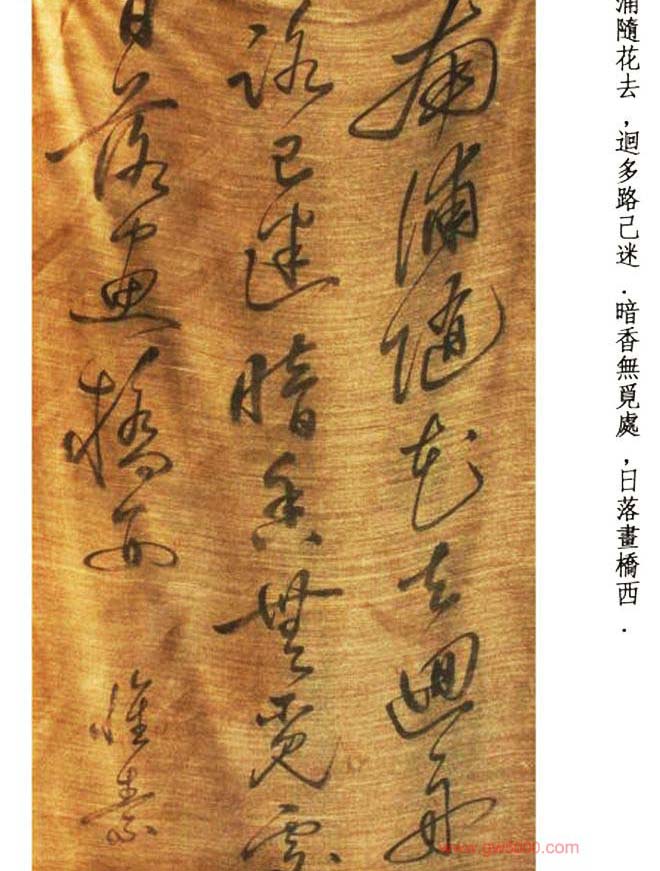 浦隨花去，迴多路己迷．暗香無覓處，日落畫橋西．
南浦隨花去迴舟
路已迷暗香無覓處
日落畫橋西